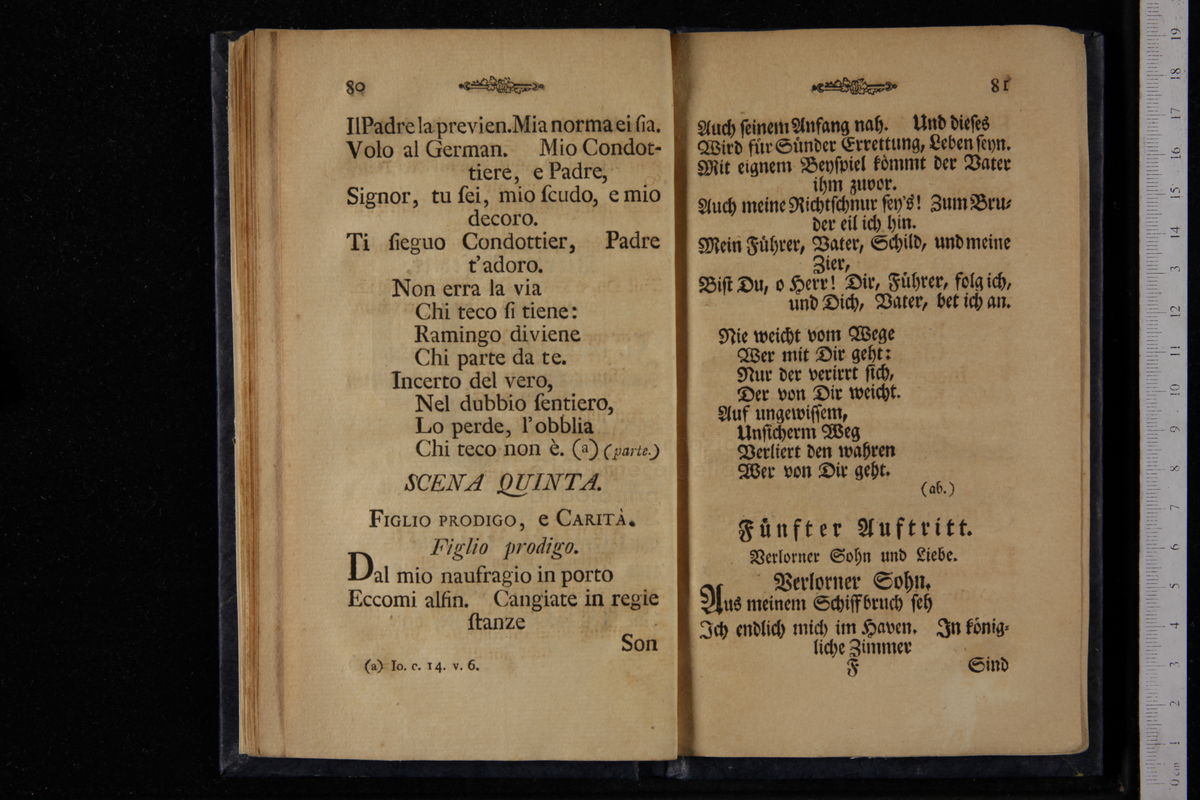 80
Il Padre la previen. Mia norma ei ſia.
Volo al German. Mio Condot-
tiere, e Padre,
Signor, tu ſei, mio ſcudo, e mio
decoro.
Ti ſieguo Condottier, Padre
t'adoro.
Non erra la via
Chi teco ſi tiene:
Ramingo diviene
Chi parte da te.
Incerto del vero,
Nel dubbio ſentiero,
Lo perde, l'obblia
Chi teco non è. (a) (parte.)
SCENA QUINTA.
FIGLIO PRODIGO, e CARITÀ.
Figlio prodigo.
Dal mio naufragio in porto
Eccomi alfin. Cangiate in regie
ſtanze
Son
(a) Io. c. 14. v. 6.
81
Auch ſeinem Anfang nah. Und dieſes
Wird für Sünder Errettung, Leben ſeyn.
Mit eignem Beyſpiel kömmt der Vater
ihm zuvor.
Auch meine Richtſchnur ſey's! Zum Bru-
der eil ich hin.
Mein Führer, Vater, Schild, und meine
Zier,
Biſt Du, o Herr! Dir, Führer, folg ich,
und Dich, Vater, bet ich an.
Nie weicht vom Wege
Wer mit Dir geht:
Nur der verirrt ſich,
Der von Dir weicht.
Auf ungewiſſem,
Unſicherm Weg
Verliert den wahren
Wer von Dir geht.
(ab.)
Fünfter Auftritt.
Verlorner Sohn und Liebe.
Verlorner Sohn.
Aus meinem Schiffbruch ſeh
Ich endlich mich im Haven. In könig-
liche Zimmer
F Sind
0 cm 1 2 3 4 5 6 7 8 9 10 11 12 13 14 15 16 17 18 19